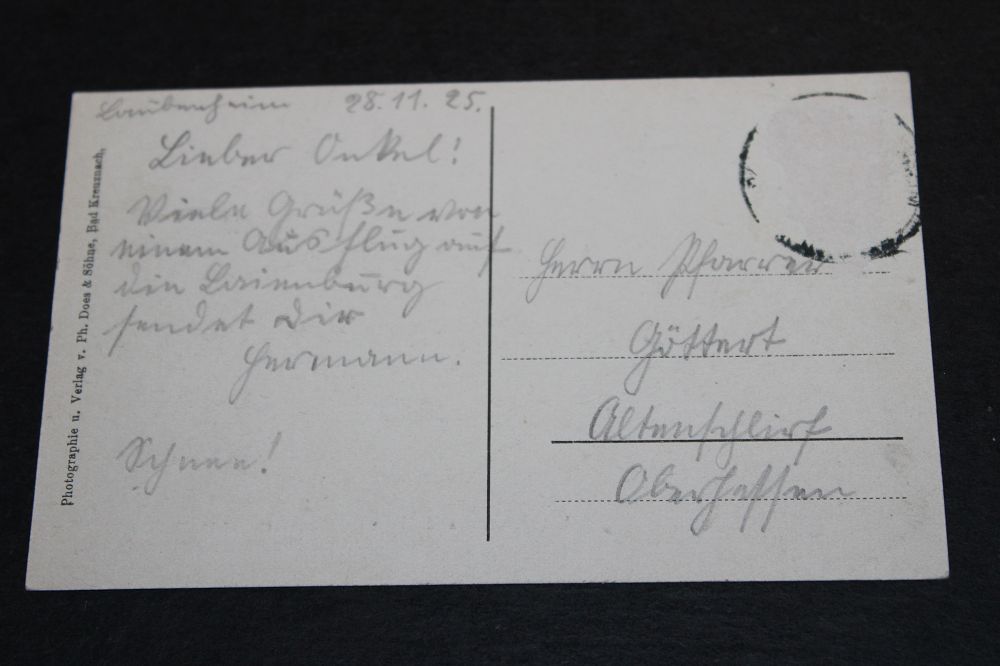 Laubenheim 28.11.25.
Lieber Onkel!
Viele Grüße von
einem Ausflug auf
die Laienburg
sendet Dir
Hermann.
Schnee!
Photographie u. Verlag v. Ph. Does & Söhne, Bad Kreuznach.
Herrn Pfarrer
Göttert
Altenschlirf
Oberhessen